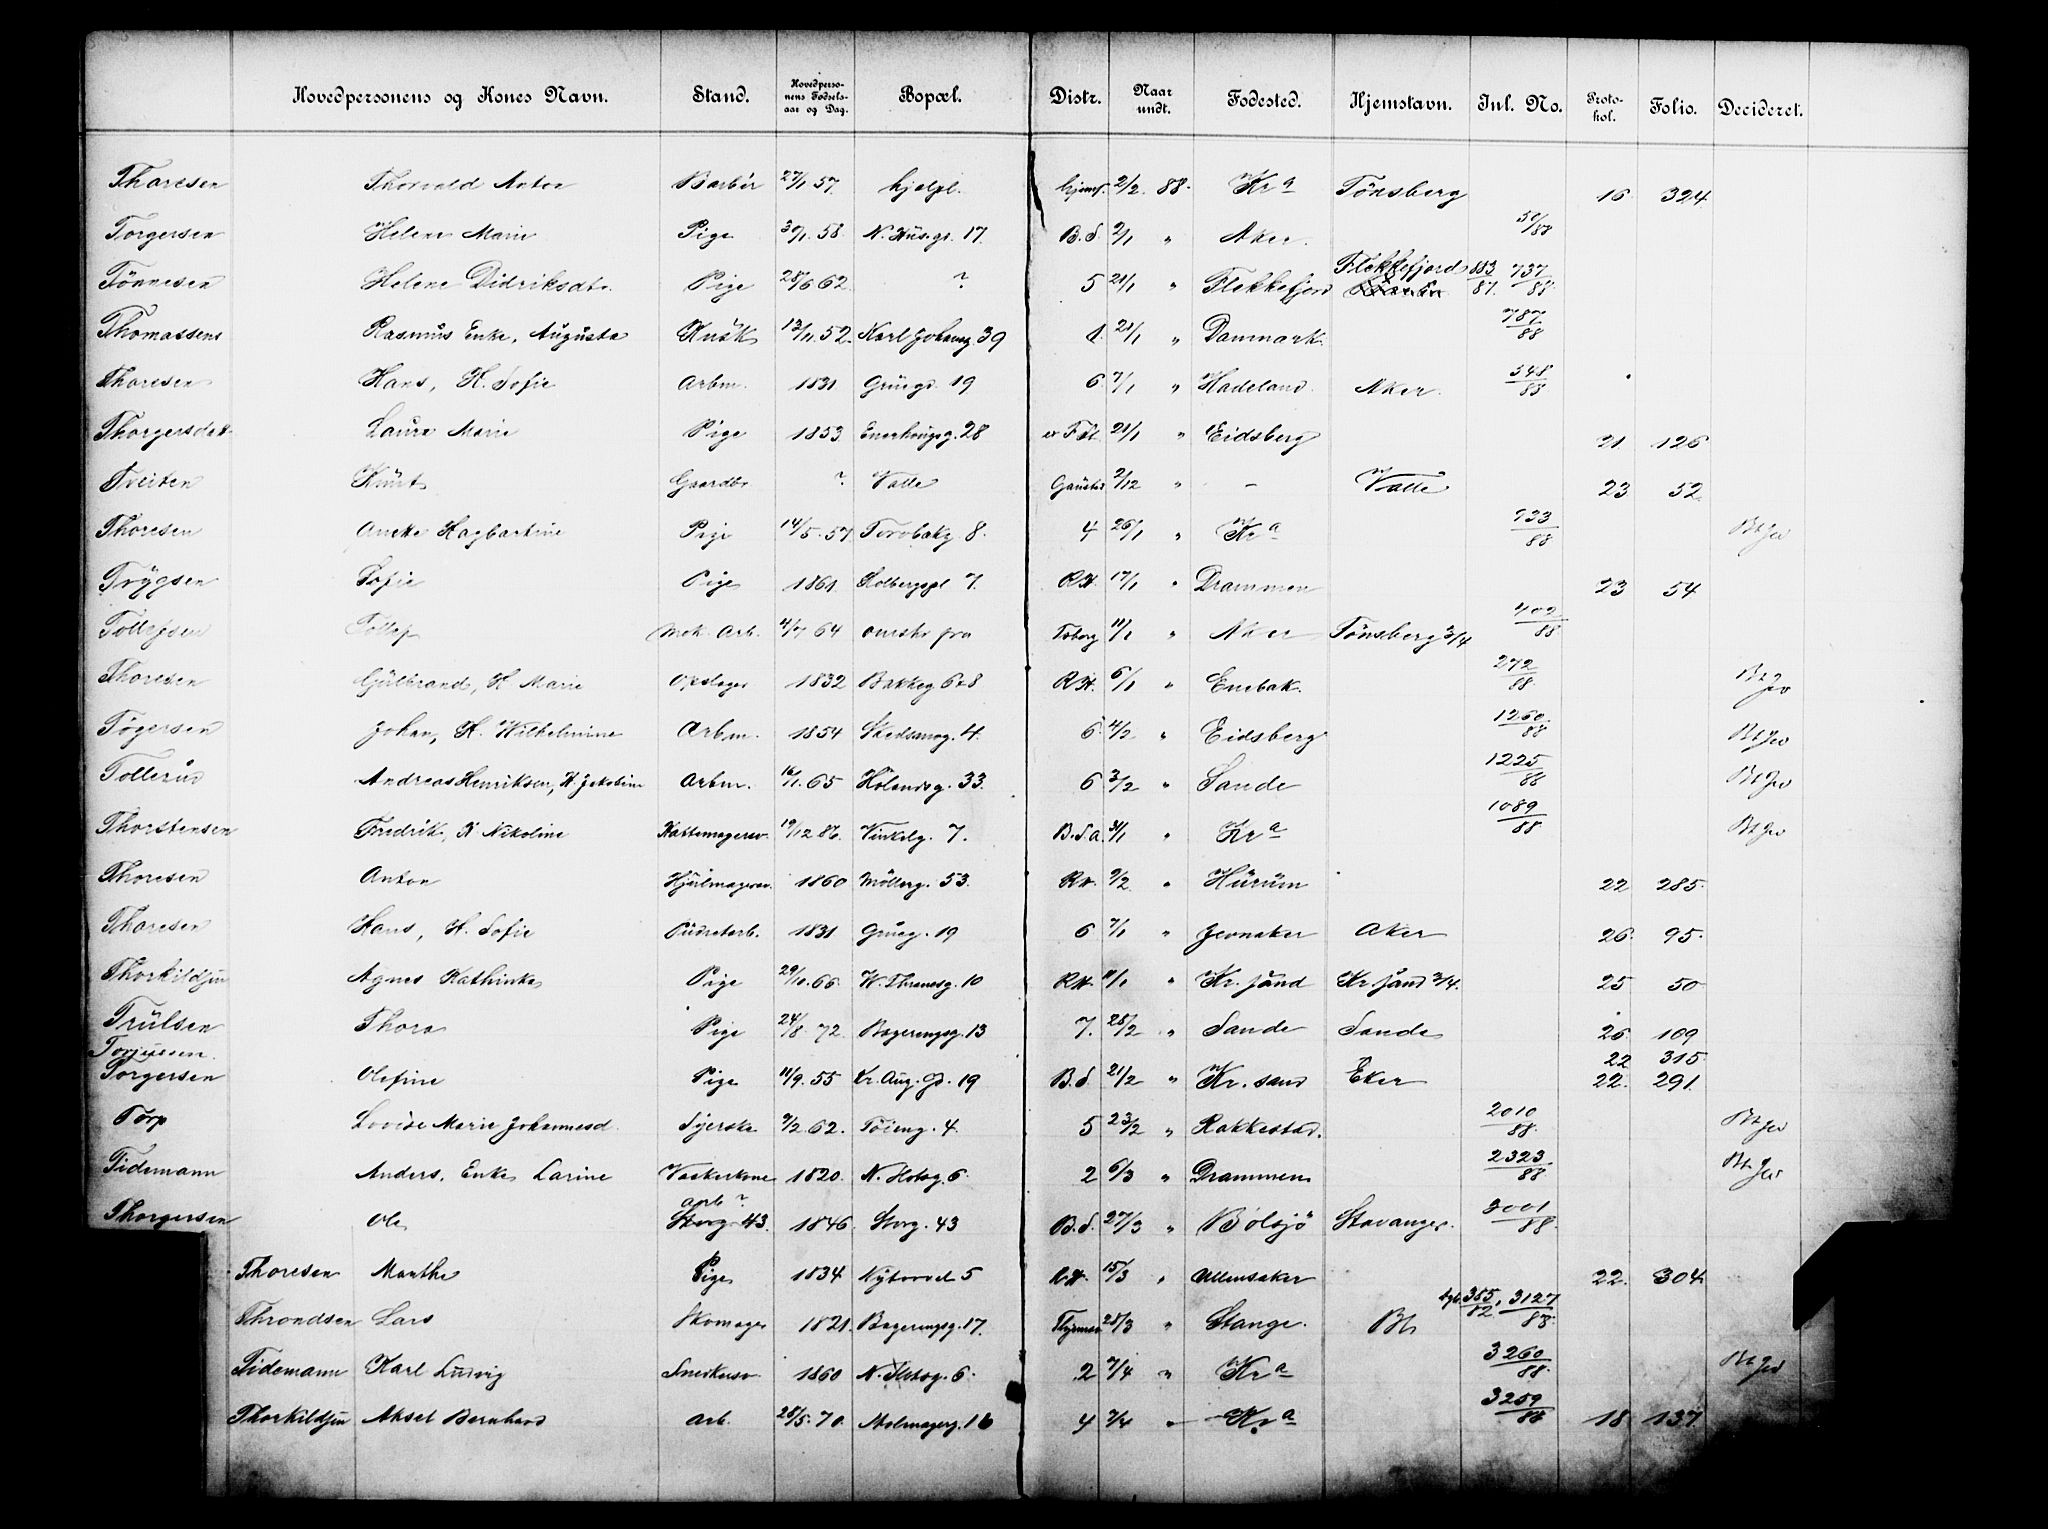 Hovedpersonens og Kones Navn. Stand. Hovedpersonens Fødselsaar og Dag. Bopæl. Distr. Naar undt. Fødested. Hjemstavn. Inl. No. Protokol. Folio. Decideret.
Thoresen Thorvald Anton Barbér 27/1 57. hjælpl. hjemf. 2/2 88. Kra Tönsberg 16 324
Torgersen Helene Marie Pige 30/1. 58. N. Husgr. 17. B.d. 2/1 " Aker. 50/88
Tönnesen Helene Didriksdtr. Pige 28/6 62 ? 5 21/1 " Flekkefjord Flekkefjord 883/87. 737/88
Thomassens Rasmus Enke, Augusta Kusk 13/11. 52. Karl Johansg. 39 d. 21/1 " Danmark. 787/88
Thoresen Hans, H. Sofie Arbm. 1831 Grüngd. 19 6. 7/1 " Hadeland Aker. 348/88
Thorgersdatt. Laura Marie Pige 1853 Enerhougsg. 28 21/1 " Eidsberg 21. 126
Tveiten Knut Gaardbr ? Valle Gausta 2/12 " - Valle 23 52
Thoresen Anette Hagbartine Pige 14/5. 57 Torvbakg. 8. 4 26/1 " Kra 933/88 Bt Jev
Trygsen Sofie Pige 1861. Holbergspl 7. RH. 17/1 " Drammen 23 54
Tollefsen Tollef Mek. Arb. 4/7 64 omstr. fra Tsberg 11/1 " Aker Tönsberg 3/4 402/88
Thoresen Gulbrand, H. Marie Opsloger 1832 Bakkeg 6+8 RH. 6/1 " Enebak. 272/88. Bt Jev
Tögersen Johan, H. Wilhelmine Arbm. 1854 Skedsmog. 4. 6. 4/2 " Eidsberg 1260/88 Bt Jev
Tollerud Andreas Henriksen, H. Jakobine Arbm. 16/1. 65 Hölandsg. 33. 6 3/2 " Sande 1225/88 Bt Jev
Thorstensen Fredrik, H. Nikoline Hattemagersv. 19/12 86. Vinkelg. 7. B.d.a. 31/1 " Kra 1089/88 Bt Jev
Thoresen Anton Hjulmagersv. 1860 Möllerg. 53. RH. 9/2 " Hurum 22 285.
Thoresen Hans, H. Sofie Pudretarb. 1831 Grüng. 19 6 7/1 " Jevnaker Aker 26. 95.
Thorkildsen Agnes Kathinka Pige 29/10. 66. W. Thranesg. 10 RH. 11/1 " Kr. sand Kr. sand 3/4. 25 50
Trulsen Thora Pige 24/8. 72. Bogeringsg. 13 7. 28/2 " Sande Sande 26. 109
Torjussen. 22 315.
Torgersen Olefine Pige 11/9. 55 Kr. Aug. Gd. 19 B.d. 21/2 " Kr. sand Eker 22. 291.
Torp Lovise Marie Johannesd. Syerske 9/2. 62. Töieng. 4. 5 23/2 " Rakkestad. 2010/88. Bt Jev
Tidemann Anders, Enke Larine Vaskerkone 1820. N. Slotsg. 6. 2 6/3 " Drammen 2323/88 Bt Jev
Thorgersen Ole arb ? Storg. 43. 1846. Storg. 43 B.d. 27/3 " Bölsjö Stavanger. 3001/88.
Thoresen Marthe Pige 1834 Nytorvet 5 RH. 15/3 " Ullensaker 22. 304.
Throndsen Lars Skomager 1821. Bogeringsg. 17. 28/3 " Stange. Bt 385/82. 3127/88.
Tidemann Karl Ludvig Snedkersv. 1860 N. Slotsg. 6. 2 7/4 " Kra 3260/88. Bt Jev
Thorkildsen Aksel Bernhard arb. 28/5. 70. Malmagerg. 16 4 7/4 " Kra 3259/88 18 137.